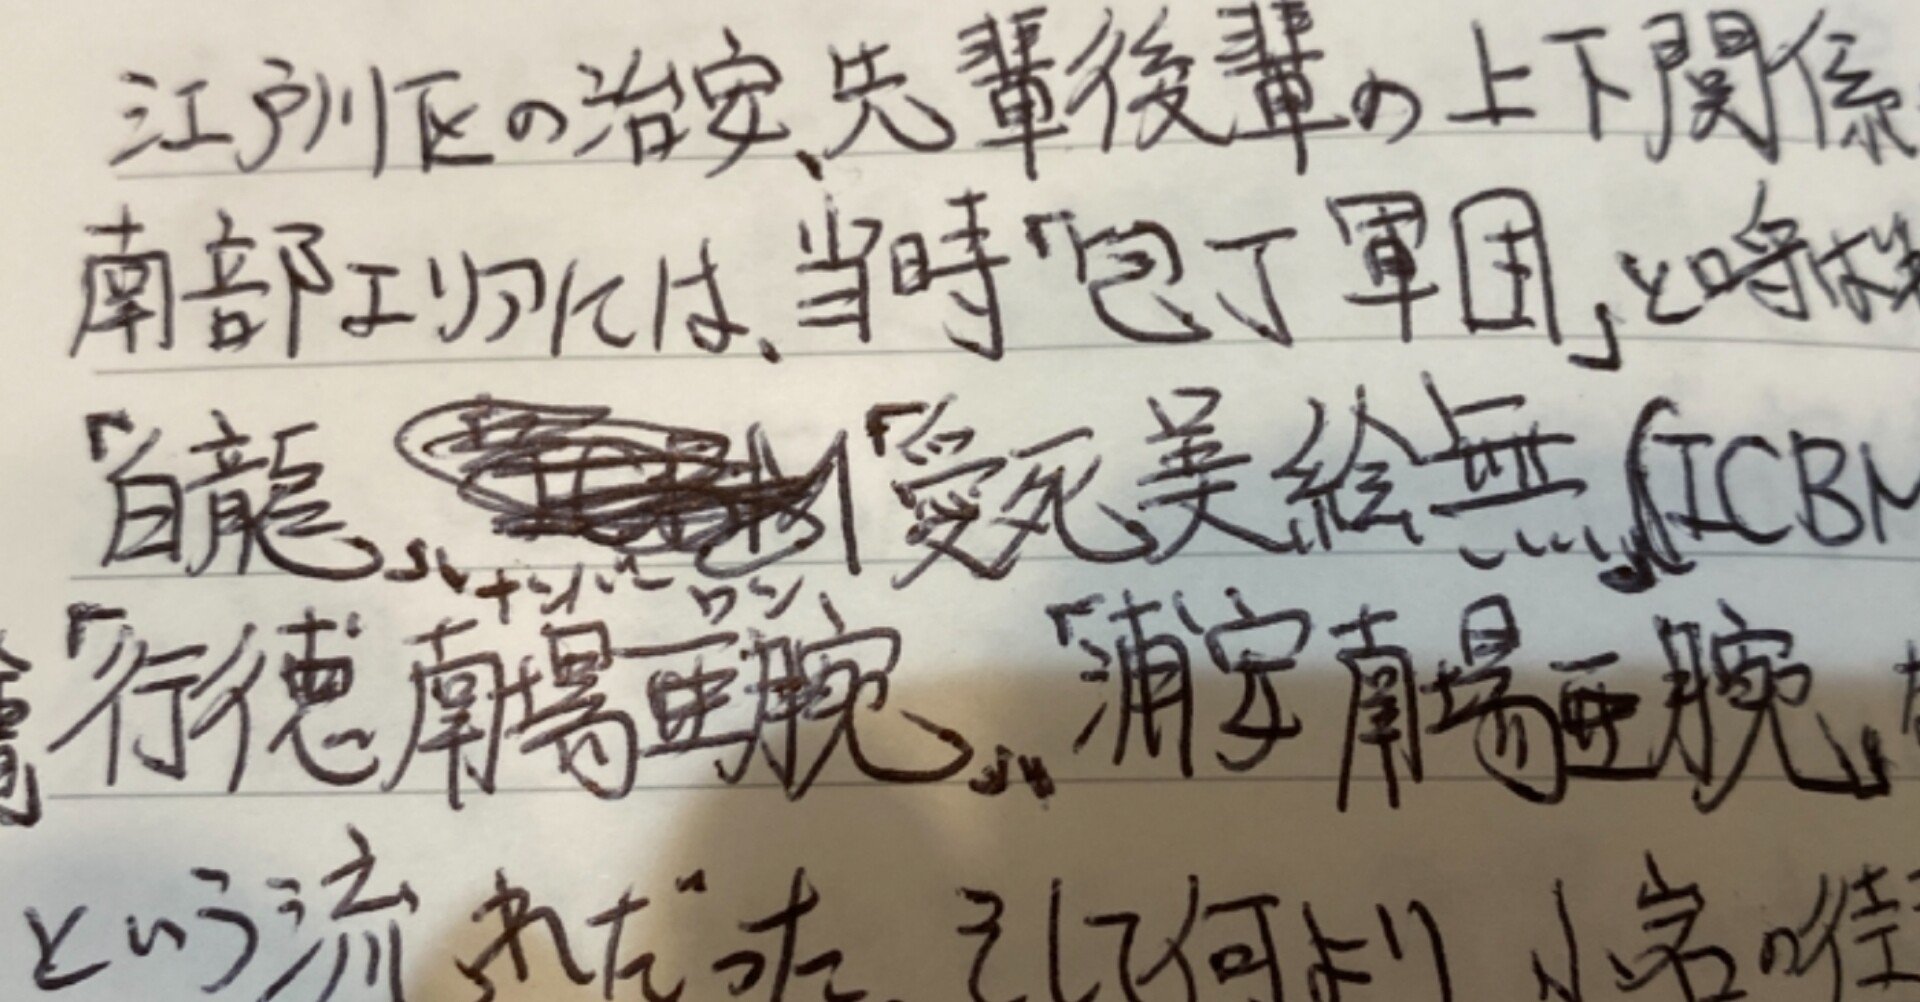 江戸川区の治安、先輩後輩の上下関係
南部エリアには、当時「包丁軍団」と呼ばれ
「白龍」、「愛死美絵無」(ICBM
ナンバーワン
「行徳南場亜腕」、「浦安南場亜腕」
という流れだった。そして何より小岩の街